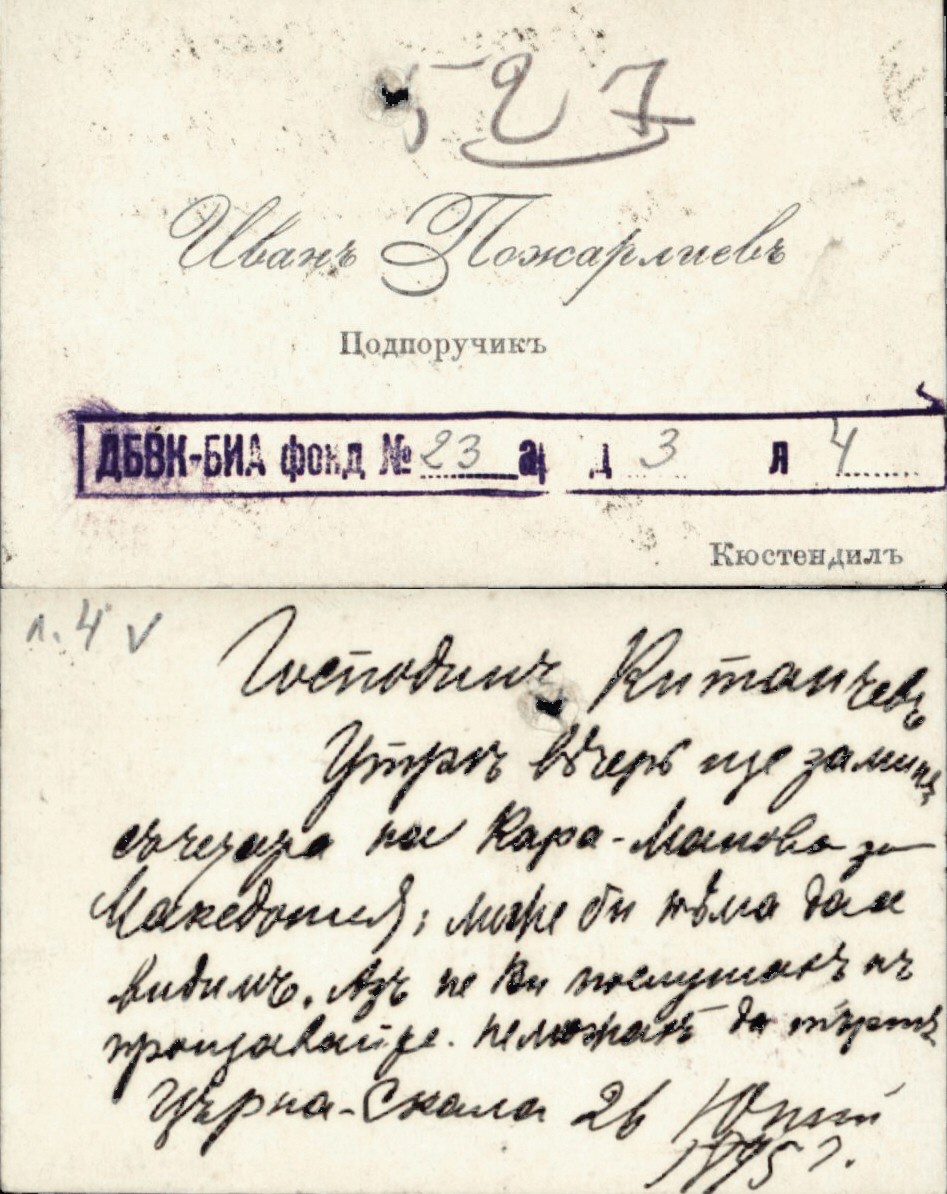 527
Иванъ Пожарлиевъ
Подпоручикъ
ДБВК-БИА фонд № 23 а д 3 л 4
Кюстендилъ
л. 4 v
Господинъ Китанчевъ
Утрѣ вѣчеръ ще замина
съ четата на Кара-Маново за
Македония; може би нѣма да се
видимъ. Азъ не Ви послушахъ
прощавайте. не можахъ да търпѫ
Църна-Скала 26 Юний
1895 г.